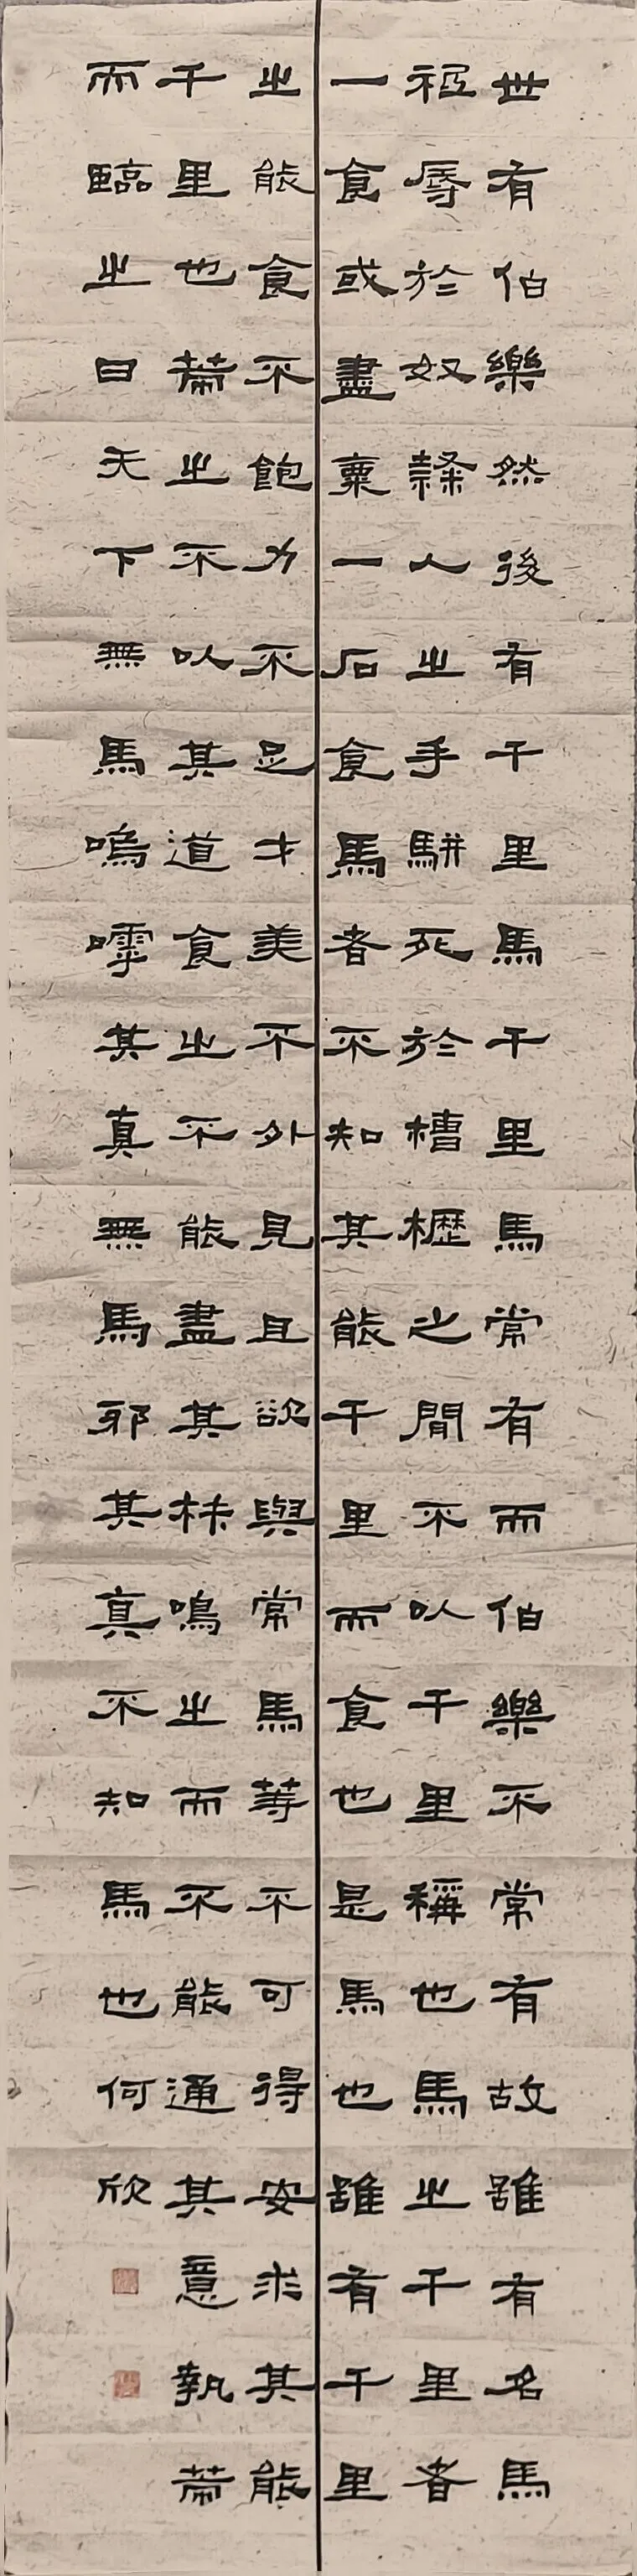 世有伯樂然後有千里馬千里馬常有而伯樂不常有故雖有名馬
祗辱於奴隸人之手駢死於槽櫪之間不以千里稱也馬之千里者
一食或盡粟一石食馬者不知其能千里而食也是馬也雖有千里
之能食不飽力不足才美不外見且欲與常馬等不可得安求其能
千里也策之不以其道食之不能盡其材鳴之而不能通其意執策
而臨之曰天下無馬嗚嘑其真無馬邪其真不知馬也何欣